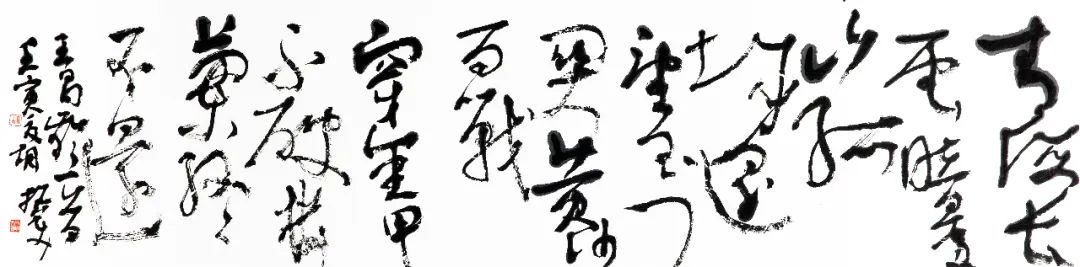 青海長
雲暗雪
山孤
城遥
望玉门
關黄沙
百戰
穿金甲
不破樓
蘭終
不還
王昌齡一首
壬寅夏胡